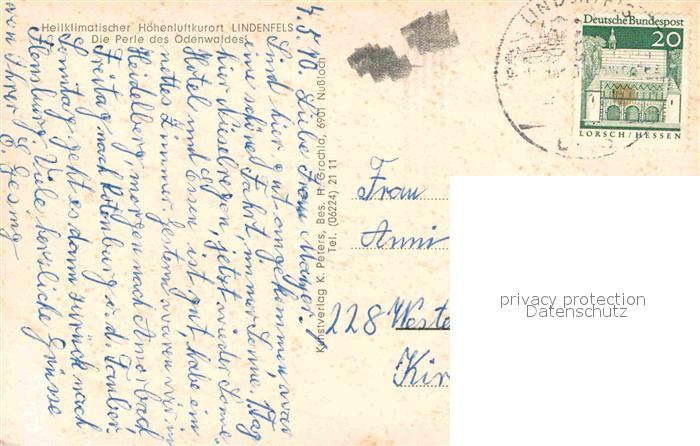 Heilklimatischer Höhenluftkurort LINDENFELS
Die Perle des Odenwaldes
4.5.70. Liebe Frau Mayer!
Sind hier gut angekommen, war
eine schöne Fahrt, immer Sonne. 1 Tag
hier Nieselregen, jetzt wieder Sonne.
Hotel und Essen ist gut, habe ein
nettes Zimmer. Gestern waren wir in
Heidelberg, morgen nach Amorbad
Freitag nach Rotenburg o. d. Tauber,
Sonntag geht es dann zurück nach
Flensburg. Viele herzliche Grüsse
von Ihrer E. Gesing
Kunstverlag K. Peters, Bes. H. Grochla, 6901 Nußloch
Tel. (06224) 21 11
Deutsche Bundespost
20
LORSCH/HESSEN
Frau
Anni
228 Weste
Kir
privacy protection
Datenschutz